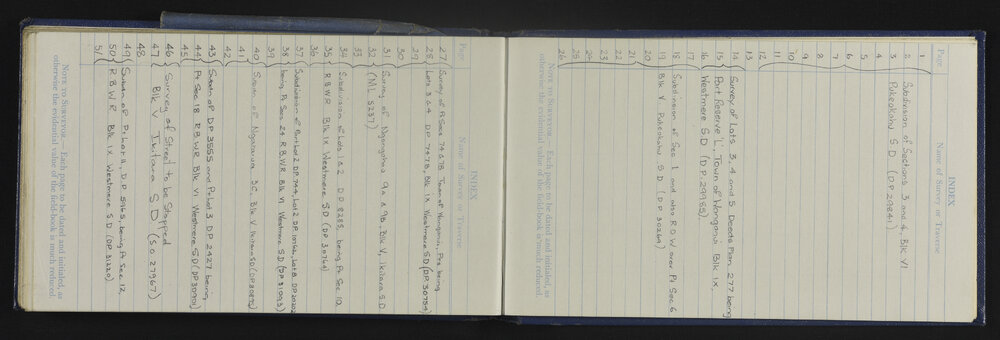 INDEX
Page Name of Survey or Traverse
1
2 Subdivision of Sections 3 and 4, Blk VI
3 Pukeokahu S D (D P 29841)
4
5
6
7
8
9
10
11
12
13
14 Survey of Lots 3, 4 and 5 Deeds Plan 277 being
15 Part Reserve 'L', Town of Wanganui Blk IX,
16 Westmere S D (D P 29965)
17
18 Subdivision of Sec 1 and also R O W over Pt Sec 6
19 Blk V Pukeokahu S D (D P 30264)
20
21
22
23
24
25
26
NOTE TO SURVEYOR.—Each page to be dated and initialed, as
otherwise the evidential value of the field-book is much reduced.
INDEX
Page Name of Survey or Traverse
27 Survey of Pt Secs 74 & 78 Town of Wanganui, Pts being
28 Lots 3 & 4 DP 7478, Blk IX Westmere S D (DP 30759)
29
30
31 Survey of Ngongoha 9A & 9B, Blk V, Ikitara S.D.
32 (ML 5237)
33
34 Subdivision of Lots 1 & 2 D P 8285, being Pt Sec 10
35 R B W R Blk IX Westmere S D (D P 30764)
36
37 Subdivision of Part Lot 2 D P 744, Lot 2 DP 10163, Lot 8 DP 20202
38 being Pt Sec 24 R B W R Blk VI Westmere S D (D P 31093)
39
40 Subdn of Ngaturi 3C, Blk V Ikitara SD (DP 30875)
41
42
43 Subdn of D P 3555 and Pt Lot 3 D P 2427 being
44 Pt Sec 18 R B W R Blk VI Westmere S D (DP 30901)
45
46 Survey of Street to be Stopped
47 Blk V Ikitara S D (S O 27967)
48
49 Subdn of Pt Lot 11, D. P 5965, being Pt Sec 12,
50 R B W R Blk IX Westmere S D (D P 31220)
51
NOTE TO SURVEYOR.—Each page to be dated and initialed, as
otherwise the evidential value of the field-book is much reduced.